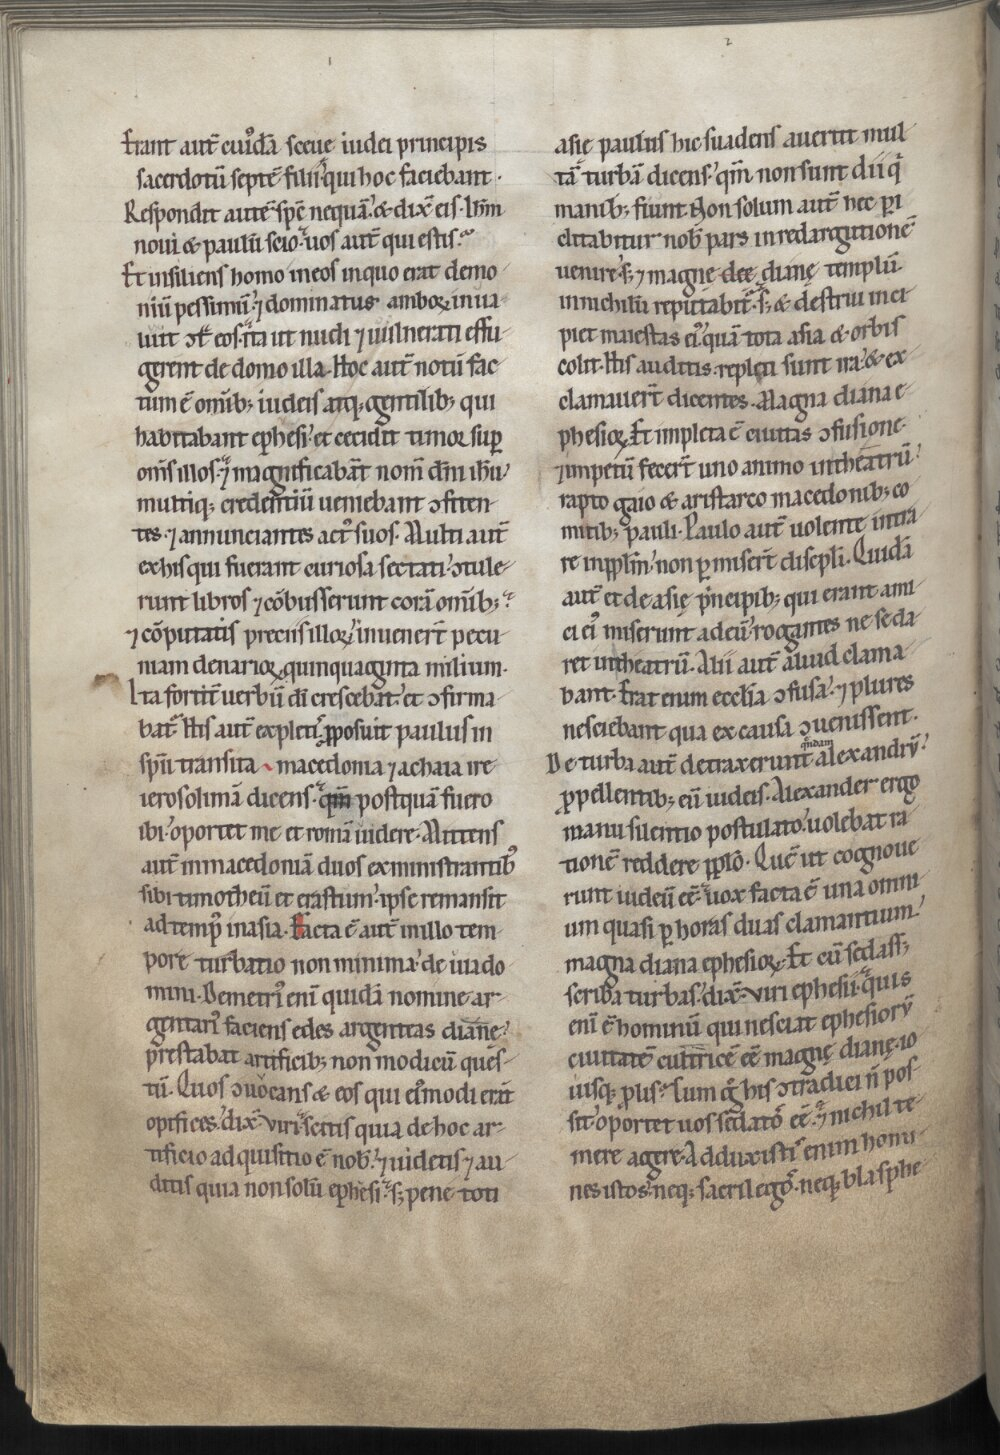 Erant aut̄ cuiꝰdā sceue iudei principis
sacerdotū septē filii qui hoc faciebant.
Respondit autē sp̄c nequā. & dix̄ eis. Ih̄m
noui & paulū scio. uos aut̄ qui estis?
Et insiliens homo in eos in quo erat demo-
niū pessimū. ⁊ dominatus amboꝝ inua-
luit ꝯt̄ eos. ita ut nudi ⁊ uulnerati effu-
gerent de domo illa. Hoc aut̄ notū fac-
tum ē om̄ib; iudeis atq; gentilib; qui
habitabant ephesi. et cecidit timor sup̄
om̄s illos. ⁊ magnificabāt nom̄ dn̄i ih̄u
multiq; credentiū ueniebant ꝯfiten-
tes. ⁊ annunciantes actꝰ suos. Multi aut̄
ex his qui fuerant curiosa sectati. ꝯtule-
runt libros ⁊ cōbusserunt corā om̄ib;
⁊ cōputatis preciis illoꝝ. inuener̄t pecu-
niam denarioꝝ quinquaginta milium.
Ita fortit̄ uerbū di crescebat. et ꝯfirma-
bat̄. His aut̄ expletis. ꝓposuit paulus in
sp̄u transita macedonia ⁊ achaia ire
ierosolimā dicens. qm̄ postquā fuero
ibi. oportet me et romā uidere. Mittens
aut̄ in macedoniā duos ex ministrantibꝰ
sibi timotheū et erastum. ipse remansit
ad tempꝰ in asia. Facta ē aut̄ in illo tem-
pore turbatio non minima. de uia do-
mini. Demetriꝰ eni quidā nomine ar-
gentariꝰ faciens edes argenteas diane.
prestabat artificib; non modicū ques-
tū. Quos ꝯuocans & eos qui eiꝰmodi erāt
opifices. dix̄. Viri scitis quia de hoc ar-
tificio adquisitio ē nob̄. ⁊ uidetis ⁊ au-
ditis quia non solū ephesi. s; pene toti
asię paulus hic suadens auertit mul-
tā turbā dicens. qm̄ non sunt dii q̄
manib; fiunt. Non solum aut̄ hec peri
clitabitur nob̄ pars in redargutionē
uenire. s; ⁊ magnę deę dianę templū
in nichilū reputabit̄. s; & destrui inci-
piet maiestas eiꝰ. quā tota asia & orbis
colit. His auditis. repleti sunt ira. & ex-
clamauer̄t dicentes. Magna diana e-
phesioꝝ. Et impleta ē ciuitas ꝯfusione.
⁊ impetū fecer̄t uno animo in theatrū.
rapto gaio & aristarco macedonib; co-
mitib; pauli. Paulo aut̄ uolente intra-
re in pp̄lm. non ꝑmiser̄t discipl̄i. Quidā
aut̄ et de asię principib; qui erant ami-
ci eiꝰ miserunt ad eū. rogantes ne se da-
ret in theatrū. Alii aut̄ aliud clama-
bant. Erat enim eccl̄ia ꝯfusa. ⁊ plures
nesciebant qua ex causa ꝯuenissent.
quendam
De turba aut̄ detraxerunt alexandrū.
ꝓpellentib; eū iudeis. Alexander ergo
manu silentio postulato. uolebat ra-
tionē reddere pp̄lo. Quē ut cognoue-
runt iudeū ee̅. uox facta ē una omni-
um quasi ꝑ horas duas clamantium.
magna diana ephesioꝝ. Et cū sedass;
scriba turbas. dix̄. Viri ephesii. quis
eni ē hominū qui nesciat ephesiorū
ciuitatē cultricē ee̅ magnę dianę. io-
uisq; prolis. Cum g̊ his ꝯtradici n̄ pos-
sit. oportet uos sedatos ee̅. ⁊ nichil te-
mere agere. Adduxistis enim homi-
nes istos. neq; sacrilegos. neq; blasphe-